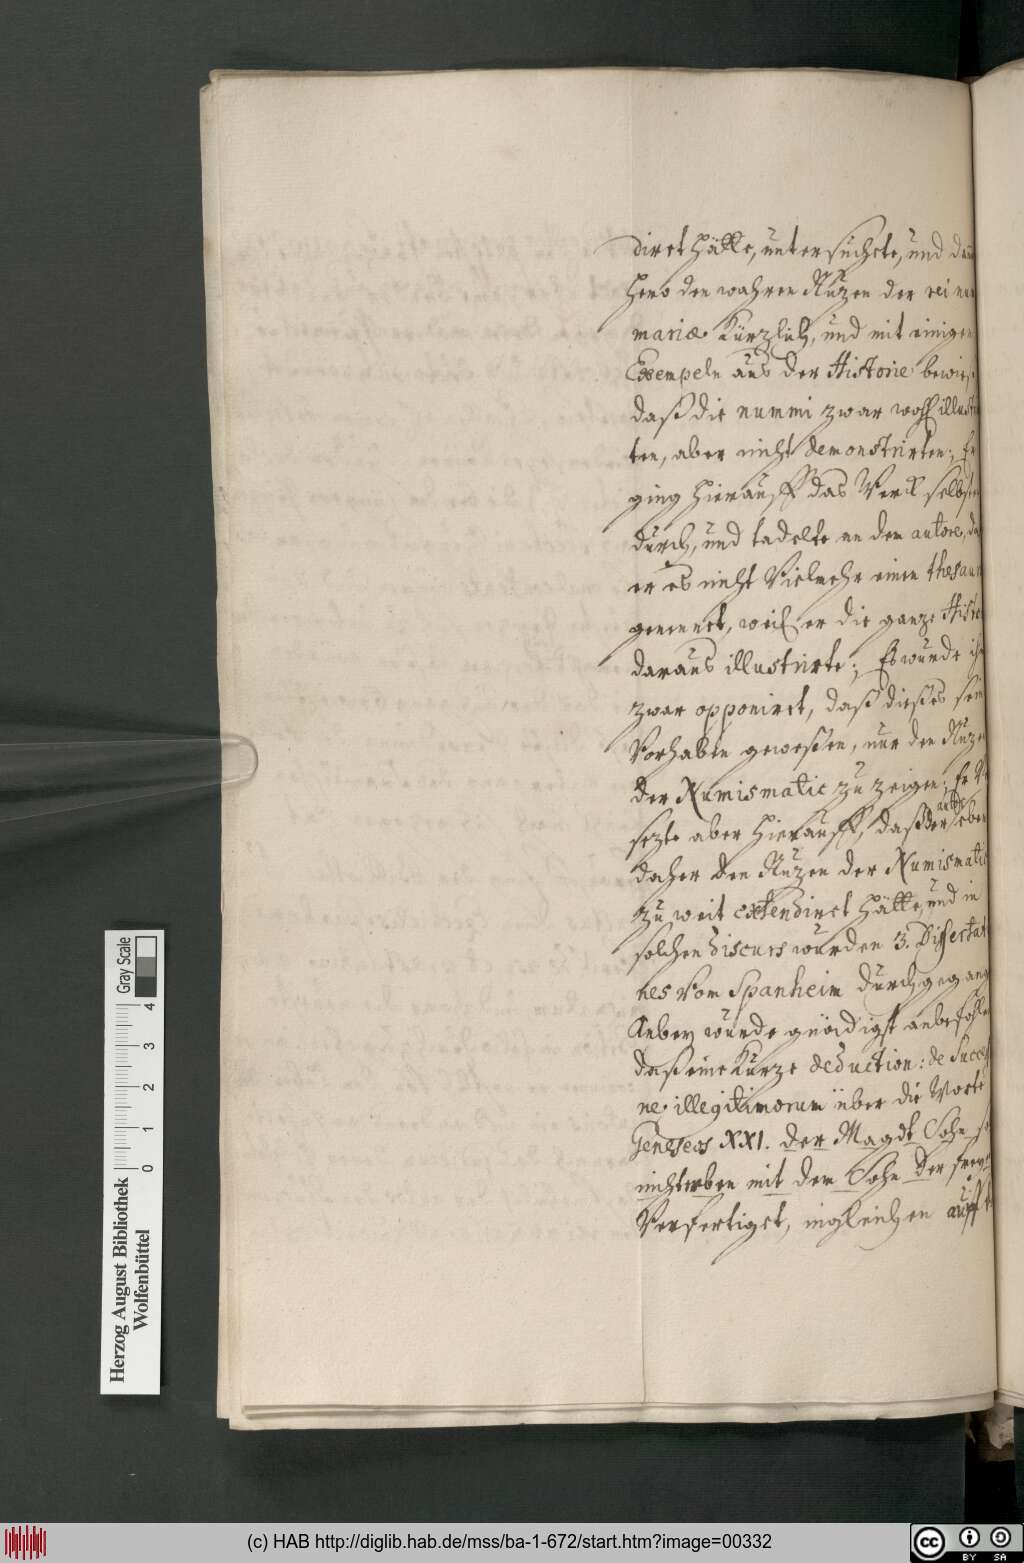 diret hätte, untersuchte, und dan
hero den wahren Nuzen der rei num
mariæ kürzlich, und mit einigen
Exempeln aus der Historie bewies
daß die nummi zwar wohl illustr
ten, aber nicht demonstrirten; Er
ging hierauff das Werck selbsten
durch, und tadelte an dem autore, da
er es nicht Vielmehr einen thesaur
genennet, weil er die ganze Histo
daraus illustrirte; Es wurde ih
zwar opponiret, daß dießes sein
Vorhaben geweßen, nur den Nuze
der Numismatic zu zeigen; Er Ve
sezte aber hierauff, daß der autor eben
daher den Nuzen der Numismatic
zu weit extendiret hätte, und in
solchen discurs wurden 3. Dissertat
nes Vom Spanheim durchgegang
Anbey wurde gnädigst anbefohle
daß eine kurze deduction: de Success
ne illegitimorum über die Worte
Geneseos XXI. der Magdt Sohn s
nicht erben mit dem Sohn der frey
Verfertiget, ingleichen auff
Herzog August Bibliothek
Wolfenbüttel
0 1 2 3 4
Gray Scale
(c) HAB http://diglib.hab.de/mss/ba-1-672/start.htm?image=00332
cc BY SA